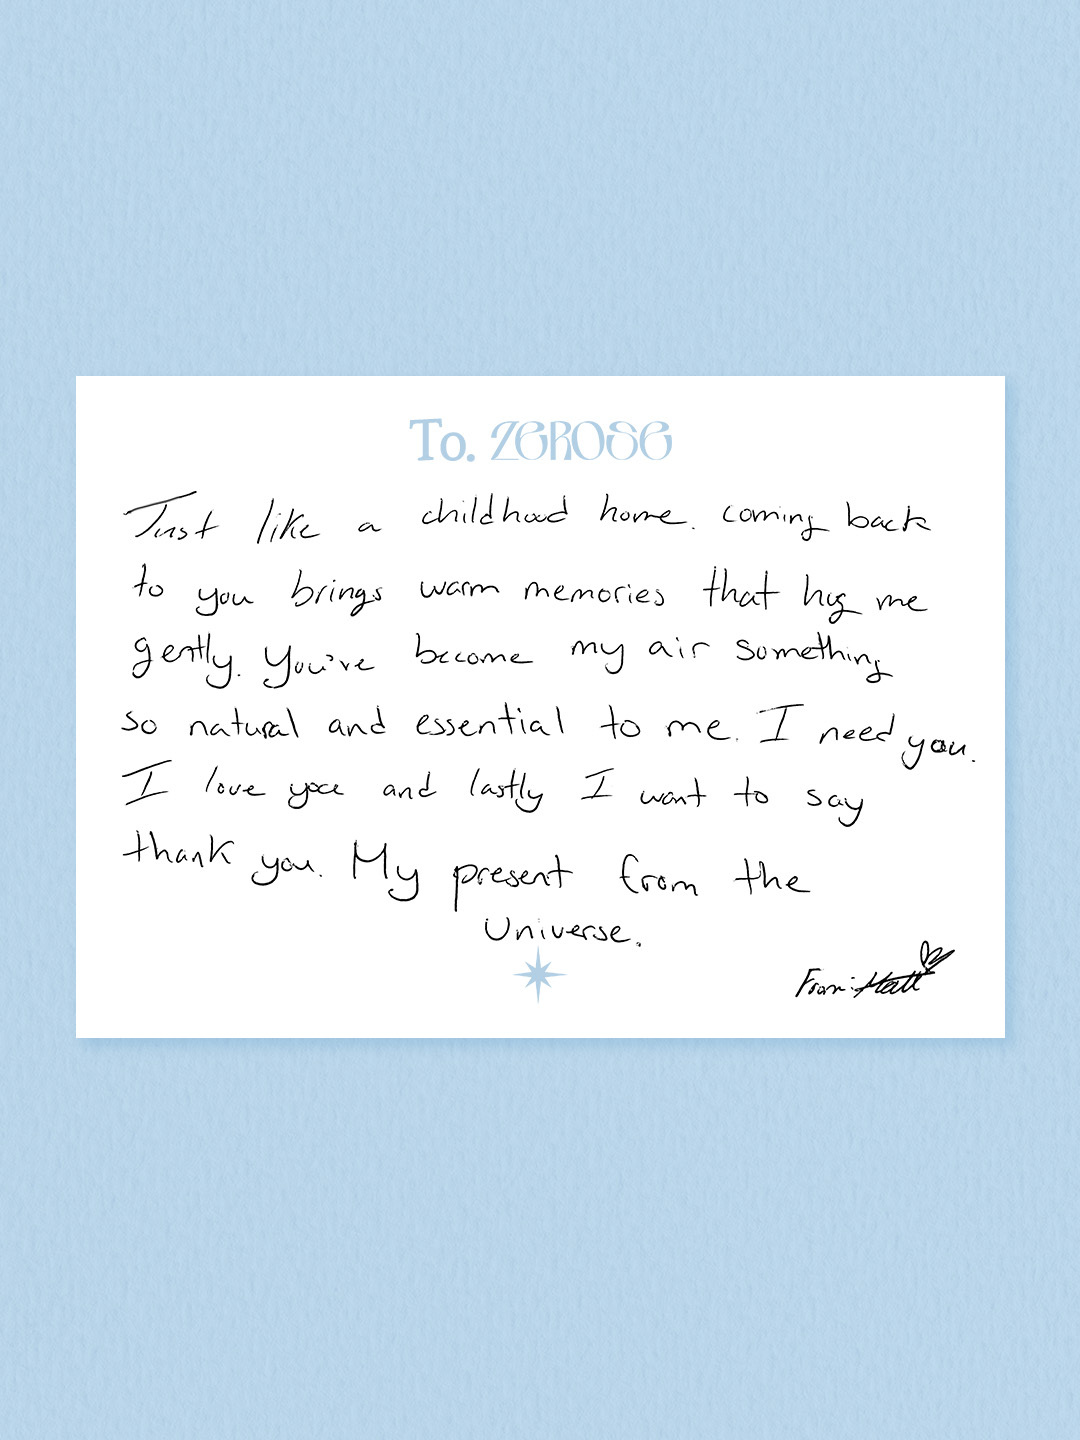 To. ZEROSE
Just like a childhood home. coming back
to you brings warm memories that hug me
gently. You've become my air something
so natural and essential to me. I need you.
I love you and lastly I want to say
thank you. My present from the
Universe.
From: Matt